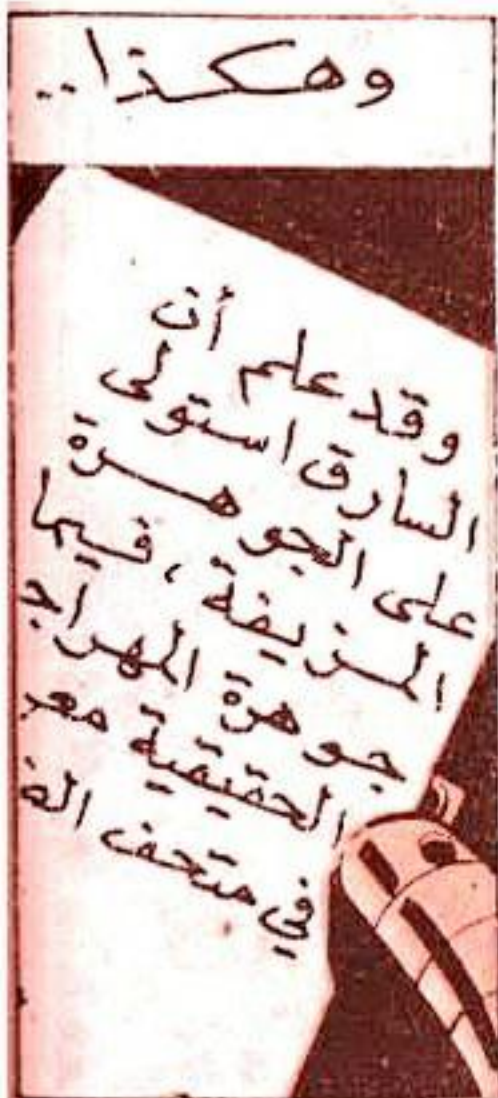 وهكذا..
وقد علم أن
السارق استولى
على الجوهرة
المزيفة، فيما
جوهرة المهراج
الحقيقية معر
في متحف الف